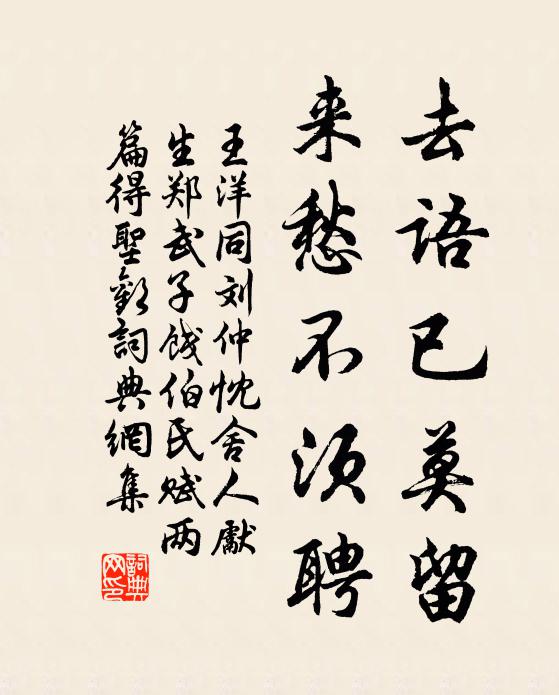 去語已莫留
来愁不须聘
王洋同刘仲忱舍人獻
生郑武子饯伯氏赋两
篇得聖詞典網集
詞典网印